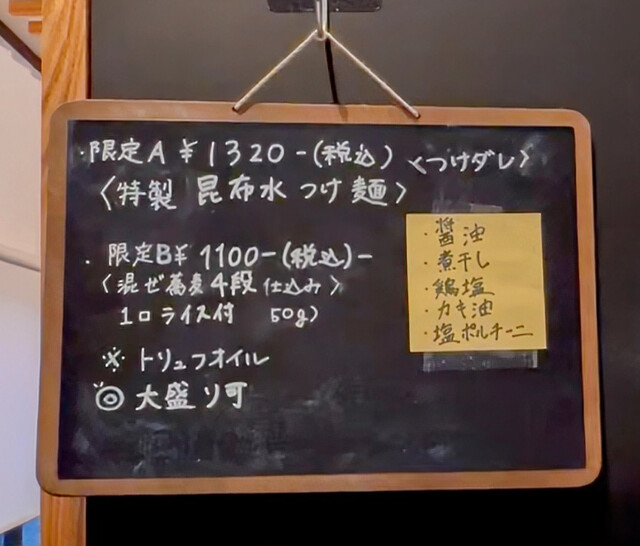 ・限定A ¥1320-(税込)
〈特製 昆布水 つけ麺〉
〈つけダレ〉
・醤油
・煮干し
・鶏塩
・カキ油
・塩ポルチーニ
・限定B¥ 1100-(税込)-
〈混ぜ蕎麦4段仕込み〉
1口ライス付 50g)
※トリュフオイル
◎大盛り可